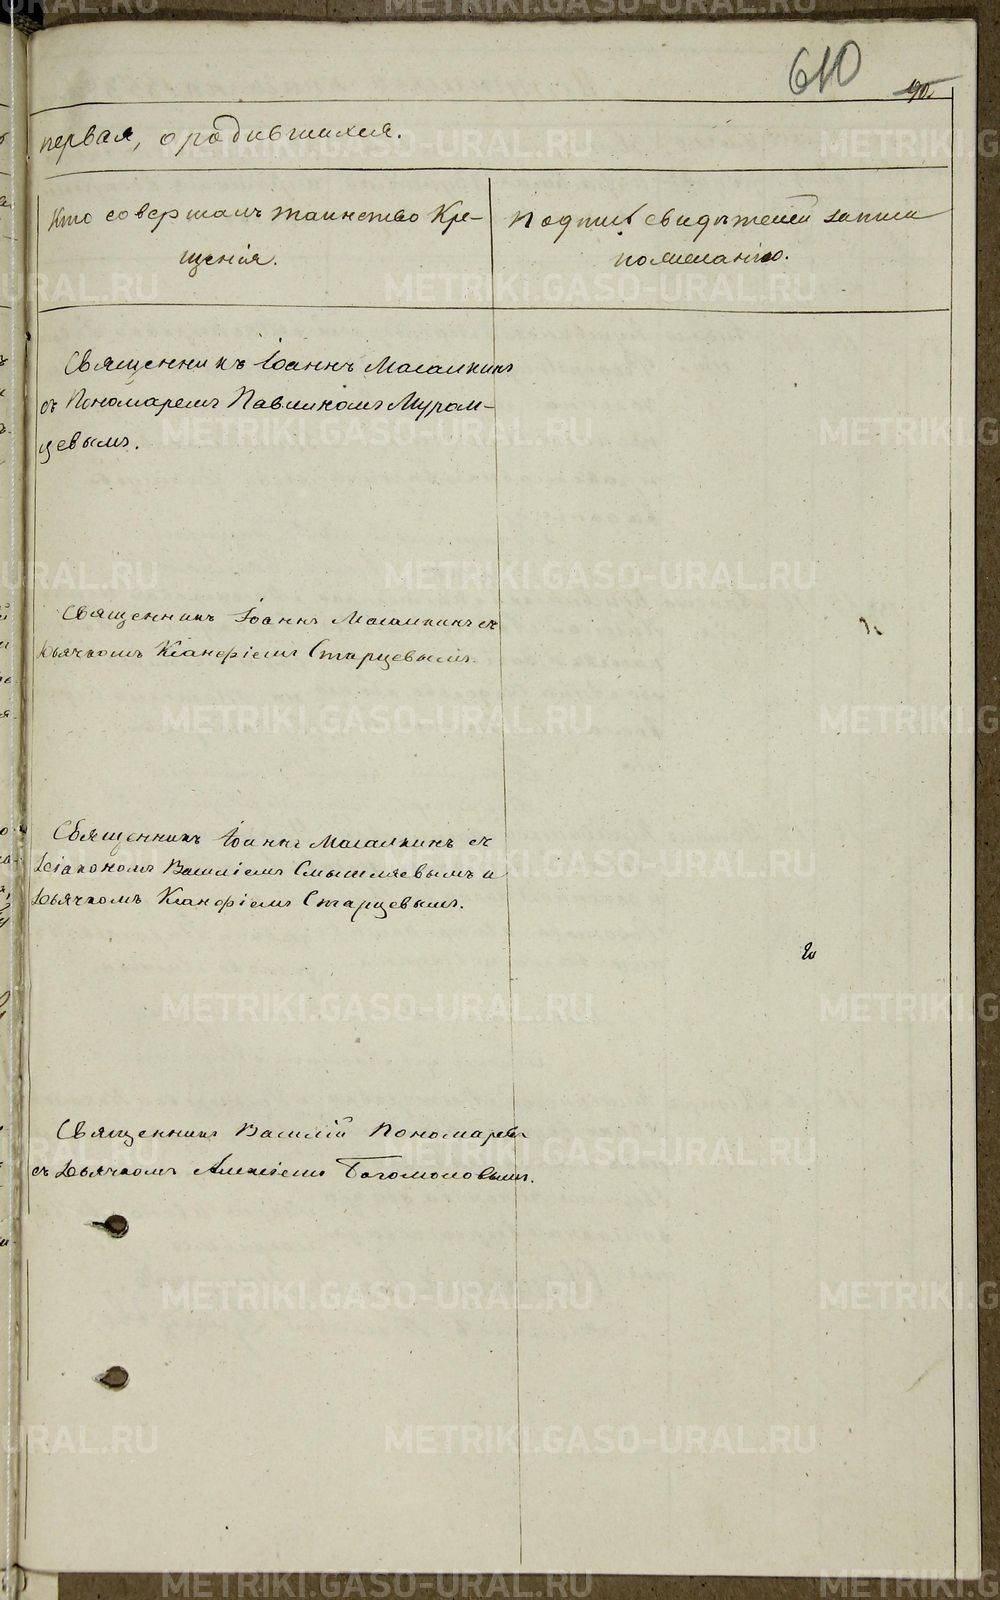 610
90.
первая, о родившихся.
Кто совершалъ таинство Кре-
щенія.
Подпись свидѣтелей записи
по желанію.
Священникъ Іоаннъ Масалкинъ
съ Пономаремъ Павликомъ Муром-
цевымъ.
Священникъ Іоаннъ Масалкинъ съ
Дьячкомъ Ксанфіемъ Старцевымъ.
Священникъ Іоаннъ Масалкинъ съ
Діакономъ Василіемъ Смышляевымъ и
Дьячкомъ Ксанфіемъ Старцевымъ.
Священникъ Василій Пономаревъ
съ Дьячкомъ Алексіемъ Богомоловымъ.
METRIKI.GASO-URAL.RU